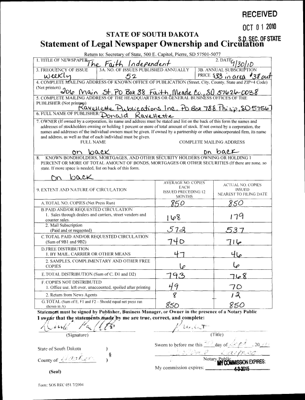 RECEIVED
OCT 01 2010
S.D. SEC. OF STATE
STATE OF SOUTH DAKOTA
Statement of Legal Newspaper Ownership and Circulation
Return to: Secretary of State, 500 E. Capitol, Pierre, SD 57501-5077
1. TITLE OF NEWSPAPER The Faith Independent
2. DATE 9/30/10
3. FREQUENCY OF ISSUE weekly
3A. NO. OF ISSUES PUBLISHED ANNUALLY 52
3B. ANNUAL SUBSCRIPTION PRICE
4. COMPLETE MAILING ADDRESS OF KNOWN OFFICE OF PUBLICATION (Street, City, County, State and ZIP+4 Code)
(Not printers) Main St. PO Box 38 Faith, Meade Co., SD 57626-0038
5. COMPLETE MAILING ADDRESS OF THE HEADQUARTERS OR GENERAL BUSINESS OFFICES OF THE
PUBLISHER (Not printer) Ravellette Publications Inc. PO Box 788 Philip, SD 57567
6. FULL NAME OF PUBLISHER Donald Ravellette
7. OWNER (If owned by a corporation, its name and address must be stated and
on back
on back
8. KNOWN BONDHOLDERS, MORTGAGEES, AND OTHER SECURITY HOLDERS OWNING OR HOLDING 1
PERCENT OR MORE OF TOTAL AMOUNT OF BONDS, MORTGAGES OR OTHER SECURITIES (If there are none, so
state. If more space is needed, list on back of this form.
on back
9. EXTENT AND NATURE OF CIRCULATION
AVERAGE NO. COPIES EACH ISSUE DURING PRECEDING 12 MONTHS
ACTUAL NO. COPIES ISSUED NEAREST TO FILING DATE
A. TOTAL NO. COPIES (Net Press Run) 850 850
B. PAID AND/OR REQUESTED CIRCULATION
1. Sales through dealers and carriers, street vendors and
counter sales. 168 179
2. Mail Subscription
(Paid and or requested) 572 537
C. TOTAL PAID AND/OR REQUESTED CIRCULATION
(Sum of 9B1 and 9B2) 740 716
D. FREE DISTRIBUTION
1. BY MAIL, CARRIER OR OTHER MEANS 47 46
2. SAMPLES, COMPLIMENTARY AND OTHER FREE
COPIES 6 6
E. TOTAL DISTRIBUTION (Sum of C, D1 and D2) 793 768
F. COPIES NOT DISTRIBUTED
1. Office use, left over, unaccounted, spoiled after printing 49 70
2. Return from News Agents 8 12
G. TOTAL (Sum of E, F1 and F2 - Should equal net press run
shown in A) 850 850
Statement must be signed by Publisher, Business Manager, or Owner in the presence of a Notary Public
I swear that the statements made by me are true, correct, and complete:
(Signature) (Title)
State of South Dakota )
County of
Sworn to before me this day of Sept 20
Notary Public
(Seal)
My commission expires: MY COMMISSION EXPIRES